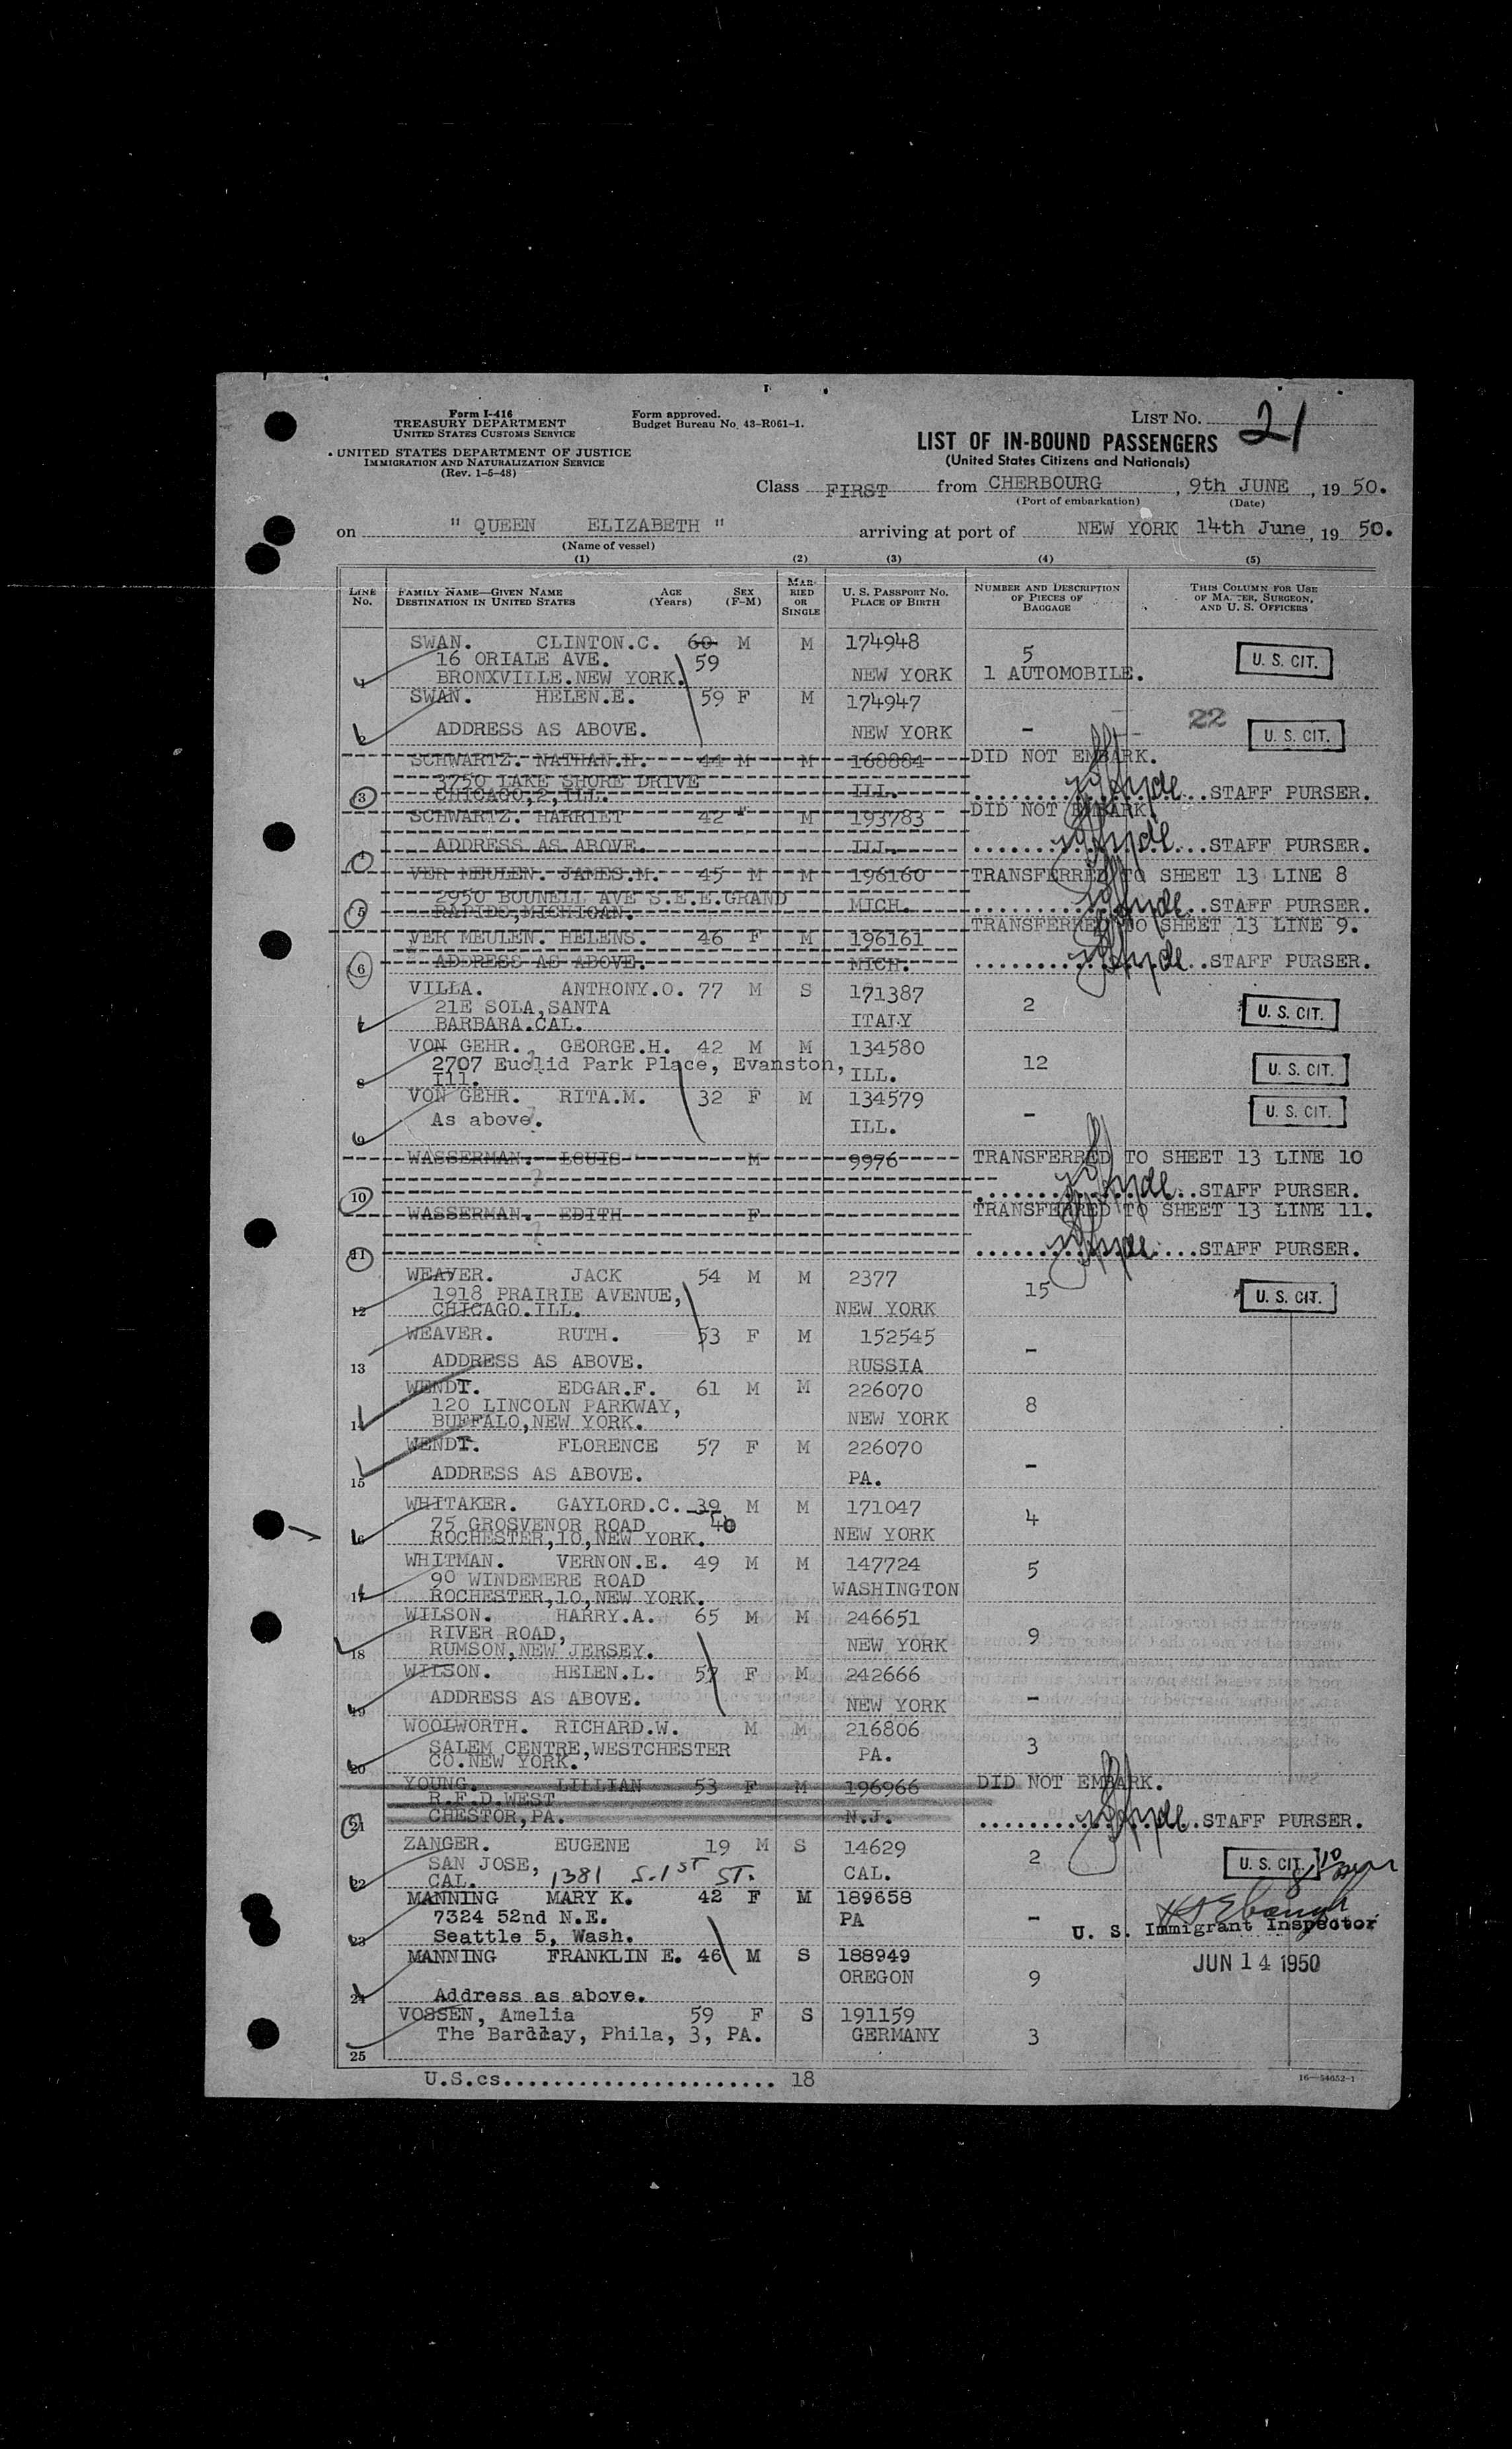 Form I-416
TREASURY DEPARTMENT
UNITED STATES CUSTOMS SERVICE
UNITED STATES DEPARTMENT OF JUSTICE
IMMIGRATION AND NATURALIZATION SERVICE
(Rev. 1-5-48)
Form approved.
Budget Bureau No. 43-R061-1.
LIST No. 21
LIST OF IN-BOUND PASSENGERS
(United States Citizens and Nationals)
Class FIRST from CHERBOURG, 9th JUNE, 1950.
(Port of embarkation) (Date)
on " QUEEN ELIZABETH " arriving at port of NEW YORK 14th June, 1950.
(Name of vessel)
(1) (2) (3) (4) (5)
LINE No. FAMILY NAME—GIVEN NAME DESTINATION IN UNITED STATES AGE (Years) SEX (F-M) MARRIED OR SINGLE U. S. PASSPORT No. PLACE OF BIRTH NUMBER AND DESCRIPTION OF PIECES OF BAGGAGE THIS COLUMN FOR USE OF MASTER, SURGEON, AND U. S. OFFICERS
SWAN. CLINTON.C. 60 M M 174948 5 U. S. CIT.
16 ORIALE AVE. 59
1 BRONXVILLE.NEW YORK. NEW YORK 1 AUTOMOBILE.
SWAN. HELEN.E. 59 F M 174947 22
2 ADDRESS AS ABOVE. NEW YORK - U. S. CIT.
SCHWARTZ. NATHAN.H. 44 M M 168884 DID NOT EMBARK.
3750 LAKE SHORE DRIVE
3 CHICAGO,2,ILL. ILL. STAFF PURSER.
SCHWARTZ. HARRIET 42 " M 193783 DID NOT EMBARK.
4 ADDRESS AS ABOVE. ILL. STAFF PURSER.
VER MEULEN. JAMES.M. 45 M M 196160 TRANSFERRED TO SHEET 13 LINE 8
2950 BOUNELL AVE S.E.E.GRAND
5 RAPIDS,MICHIGAN. MICH. STAFF PURSER.
VER MEULEN. HELENS. 46 F M 196161 TRANSFERRED TO SHEET 13 LINE 9.
6 ADDRESS AS ABOVE. MICH. STAFF PURSER.
VILLA. ANTHONY.O. 77 M S 171387 2 U. S. CIT.
21E SOLA,SANTA
7 BARBARA.CAL. ITALY
VON GEHR. GEORGE.H. 42 M M 134580 12 U. S. CIT.
2707 Euclid Park Place, Evanston,
8 Ill. ILL.
VON GEHR. RITA.M. 32 F M 134579 - U. S. CIT.
9 As above. ILL.
WASSERMAN. LOUIS M 9976 TRANSFERRED TO SHEET 13 LINE 10
10 STAFF PURSER.
WASSERMAN. EDITH F TRANSFERRED TO SHEET 13 LINE 11.
11 STAFF PURSER.
WEAVER. JACK 54 M M 2377 15 U. S. CIT.
1918 PRAIRIE AVENUE,
12 CHICAGO.ILL. NEW YORK
WEAVER. RUTH. 53 F M 152545 -
13 ADDRESS AS ABOVE. RUSSIA
WENDT. EDGAR.F. 61 M M 226070 8
120 LINCOLN PARKWAY,
14 BUFFALO,NEW YORK. NEW YORK
WENDT. FLORENCE 57 F M 226070 -
15 ADDRESS AS ABOVE. PA.
WHITAKER. GAYLORD.C. 39 M M 171047 4
75 GROSVENOR ROAD 40
16 ROCHESTER,10,NEW YORK. NEW YORK
WHITMAN. VERNON.E. 49 M M 147724 5
90 WINDEMERE ROAD
17 ROCHESTER,10,NEW YORK. WASHINGTON
WILSON. HARRY.A. 65 M M 246651 9
RIVER ROAD,
18 RUMSON,NEW JERSEY. NEW YORK
WILSON. HELEN.L. 57 F M 242666 -
19 ADDRESS AS ABOVE. NEW YORK
WOOLWORTH. RICHARD.W. M M 216806 3
SALEM CENTRE,WESTCHESTER
20 CO.NEW YORK. PA.
YOUNG. LILLIAN 53 F M 196966 DID NOT EMBARK.
R.F.D.WEST
21 CHESTOR,PA. N.J. STAFF PURSER.
ZANGER. EUGENE 19 M S 14629 2 U. S. CIT.
SAN JOSE,
22 CAL. 1381 S. 1st ST. CAL.
MANNING MARY K. 42 F M 189658 -
7324 52nd N.E. PA
23 Seattle 5, Wash. U. S. Immigrant Inspector
MANNING FRANKLIN E. 46 M S 188949 9 JUN 14 1950
OREGON
24 Address as above.
VOSSEN, Amelia 59 F S 191159 3
The Barclay, Phila, 3, PA. GERMANY
25
U.S.cs........................ 18
16—54652-1